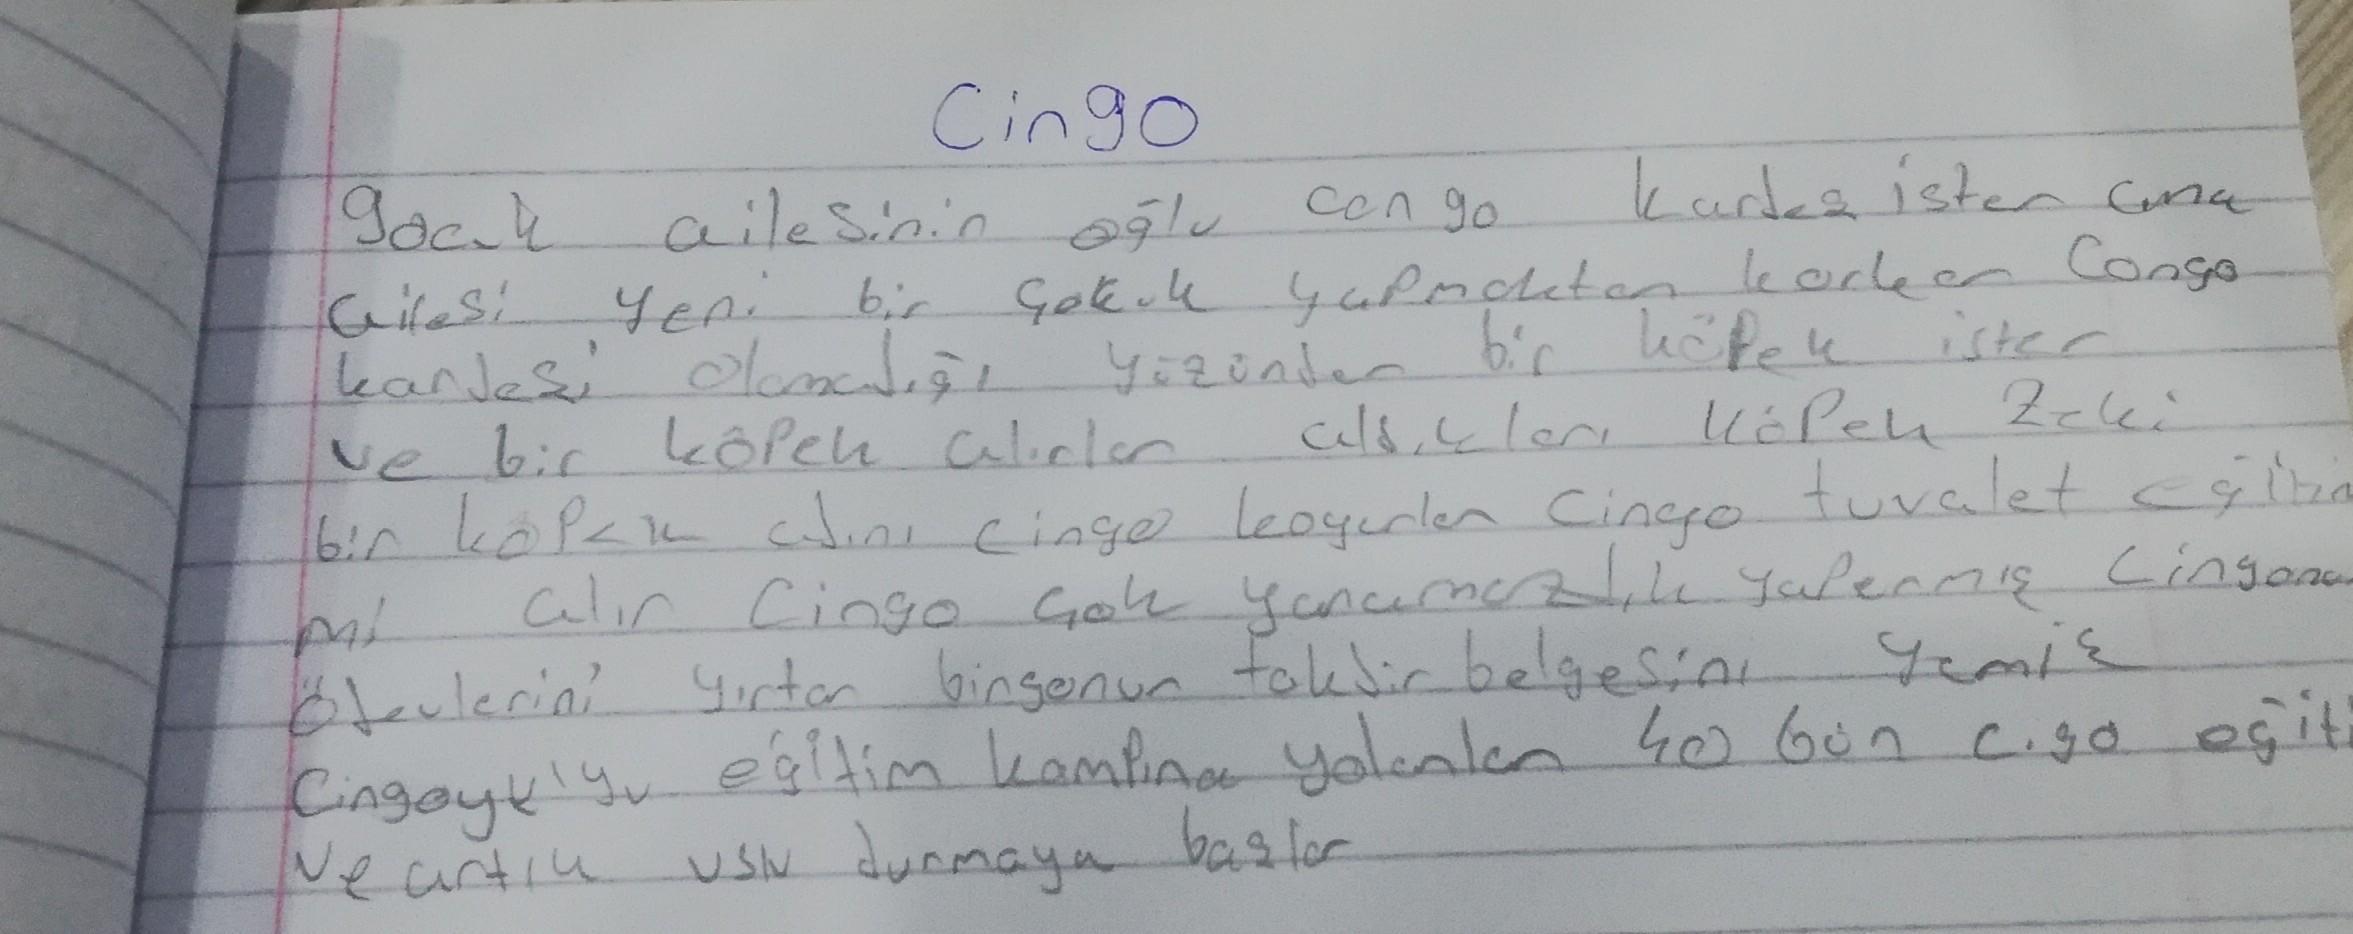 Cingo
gocuk ailesinin oğlu congo kardeş ister ama
ailesi yeni bir çokuk yapmaktan korkar Congo
kardeşi olamadığı yüzünden bir köpek ister
ve bir köpek alırlar aldıkları köpek zeki
bir köpek adını cingo koyarlar Cingo tuvalet eğitim
mi alır Cingo çok yaramazlık yaparmış Cingona
ödevlerini yırtar bingonun takdir belgesini yemiş
Cingoyu eğitim kampına yolarlar 40 gün c.go eğiti
ve artık uslu durmaya başlar